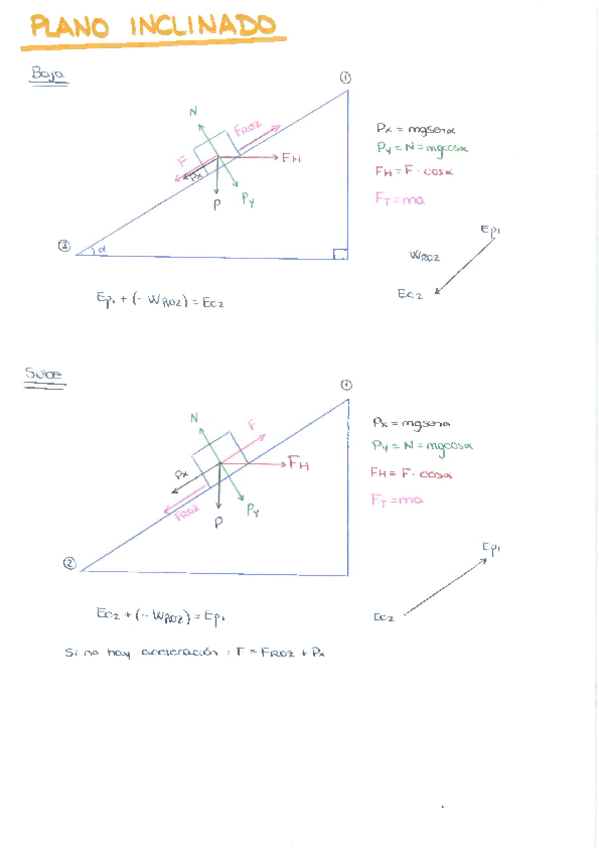 PLANO INCLINADO
Baja
①
N
FROZ
F
FH
Px
P
Py
②
α
Px = mgsenα
Py = N = mgcosα
FH = F · cosα
FT = ma
Ep1
WROZ
Ec2
Ep1 + (-WROZ) = Ec2
Sube
①
N
F
FH
Px
FROZ
P
Py
②
Px = mgsenα
Py = N = mgcosα
FH = F · cosα
FT = ma
Ep1
Ec2
Ec2 + (-WROZ) = Ep1
Si no hay aceleración : F = FROZ + Px